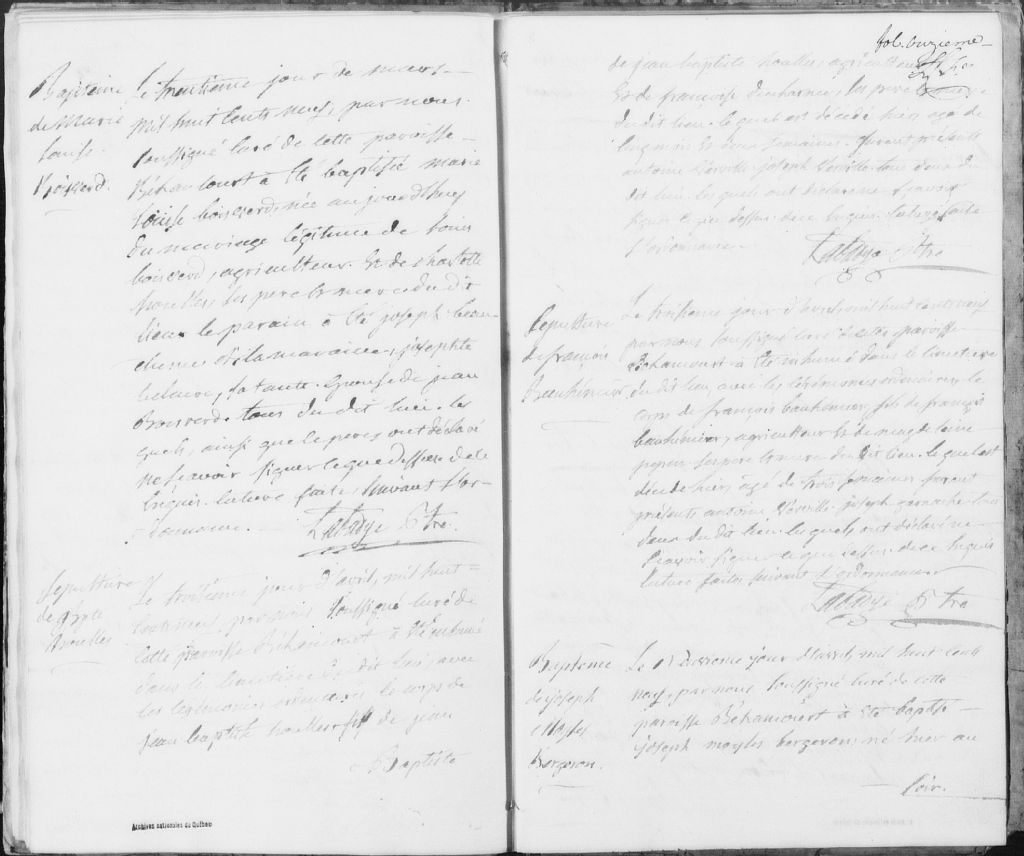 Baptême
de Marie
Louise
Boisverd.
Le trentieme jour de mars
mil huit cents neuf, par nous
soussigné curé de cette paroisse
Békancourt à été baptisée marie
Louise boisverd, née aujourdhuy
du mariage légitime de Louis
boisverd, agriculteur. Et de charlotte
les pere et mere du dit
lieu. le parain à été joseph beau-
chene et la maraine, josephte
sa tante. Epouse de jean
Boisverd. tous du dit lieu. les
quels, ainsi que le pere, ont déclaré
ne sçavoir signer ce que dessus. de ce
enquis. lecture faite, suivant l'or-
donnance.
Labadye Ptre.
Sepulture
de
Le troisieme jour d'avril, mil huit
cents neuf, par nous soussigné curé de
cette paroisse Békancourt à été inhumé
dans le cimetiere du dit lieu, avec
les cérémonies ordinaires, le corps de
jean baptiste fils de jean
Baptiste
Archives nationales du Québec
fol. onzieme
de jean baptiste agriculteur
Et de francoise les pere et mere
du dit lieu. le quel est décédé hier, agé de
mois et deux semaines. furent présents
antoine Verville joseph Verville tous deux du
dit lieu. les quels ont déclaré ne sçavoir
signer ce que dessus. de ce enquis. lecture faite
l'ordonnance.
Labadye Ptre
Sepulture
de françois
Bauhinier
Le jour d'avril, mil huit cents neuf
par nous soussigné curé de cette paroisse
Békancourt à été inhumé dans le cimetiere
du dit lieu, avec les cérémonies ordinaires, le
corps de francois bauhinier, fils de françois
bauhinier, agriculteur Et de magdeleine
pepin. les pere et mere du dit lieu. le quel est
décédé hier, agé de trois semaines. furent
présents antoine Verville joseph tous
deux du dit lieu. les quels ont déclaré ne
sçavoir signer ce que dessus. de ce enquis
lecture faite, suivant l'ordonnance
Labadye Ptre
Baptême
de joseph
Moyses
Bergeron.
Le jour d'avril, mil huit cents
neuf, par nous soussigné curé de cette
paroisse Békancourt à été baptisé
joseph moyses bergeron, né hier au
soir.